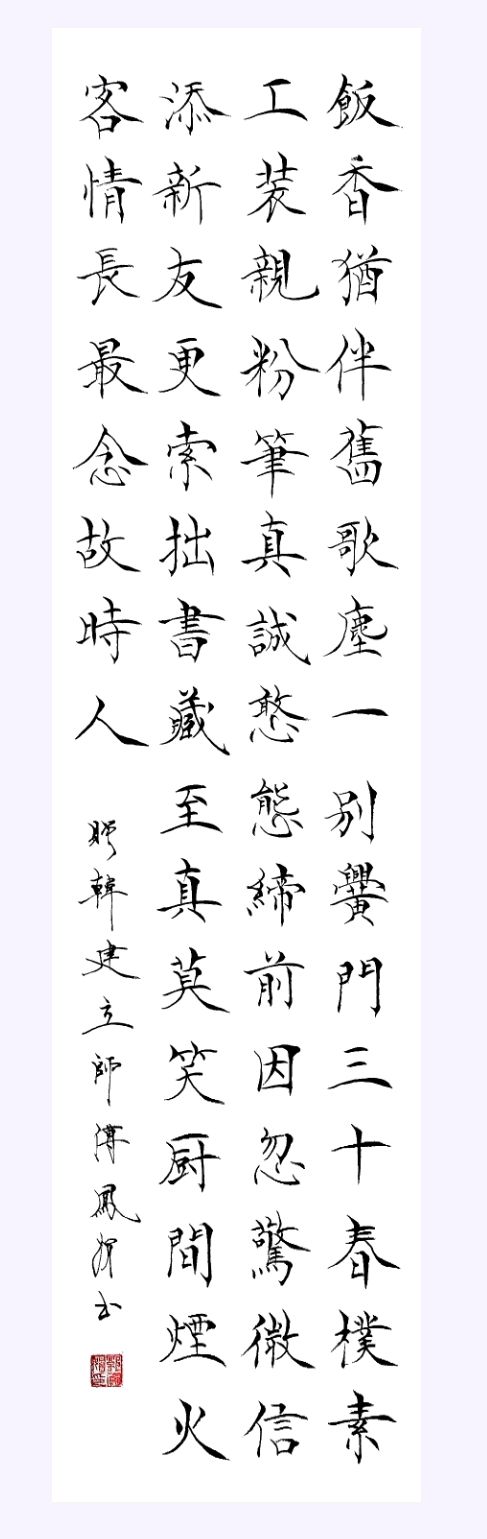 飯香猶伴舊歌塵一別黌門三十春樸素
工装親粉筆真誠憨態締前因忽驚微信
添新友更索拙書藏至真莫笑厨間煙火
客情長最念故時人
韓建立師 鳳 书